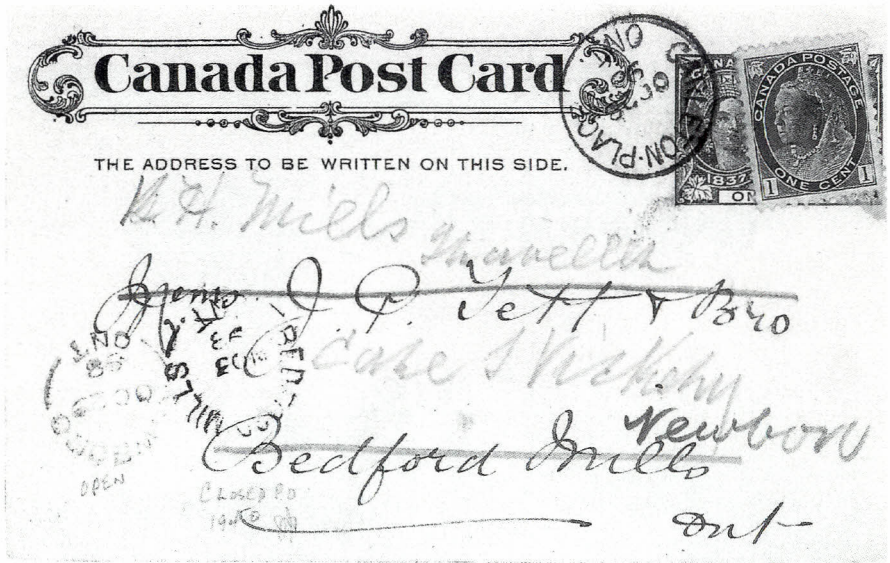 Canada Post Card
THE ADDRESS TO BE WRITTEN ON THIS SIDE.
CARLETON-PLACE ONT.
CANADA POSTAGE
1 ONE CENT 1
1837
H. Mills
Traveller
J. P. Tett & Bro
Newboro
Bedford Mills
Ont
BEDFORD MILLS
ONT
98
OPEN
CLOSED PO